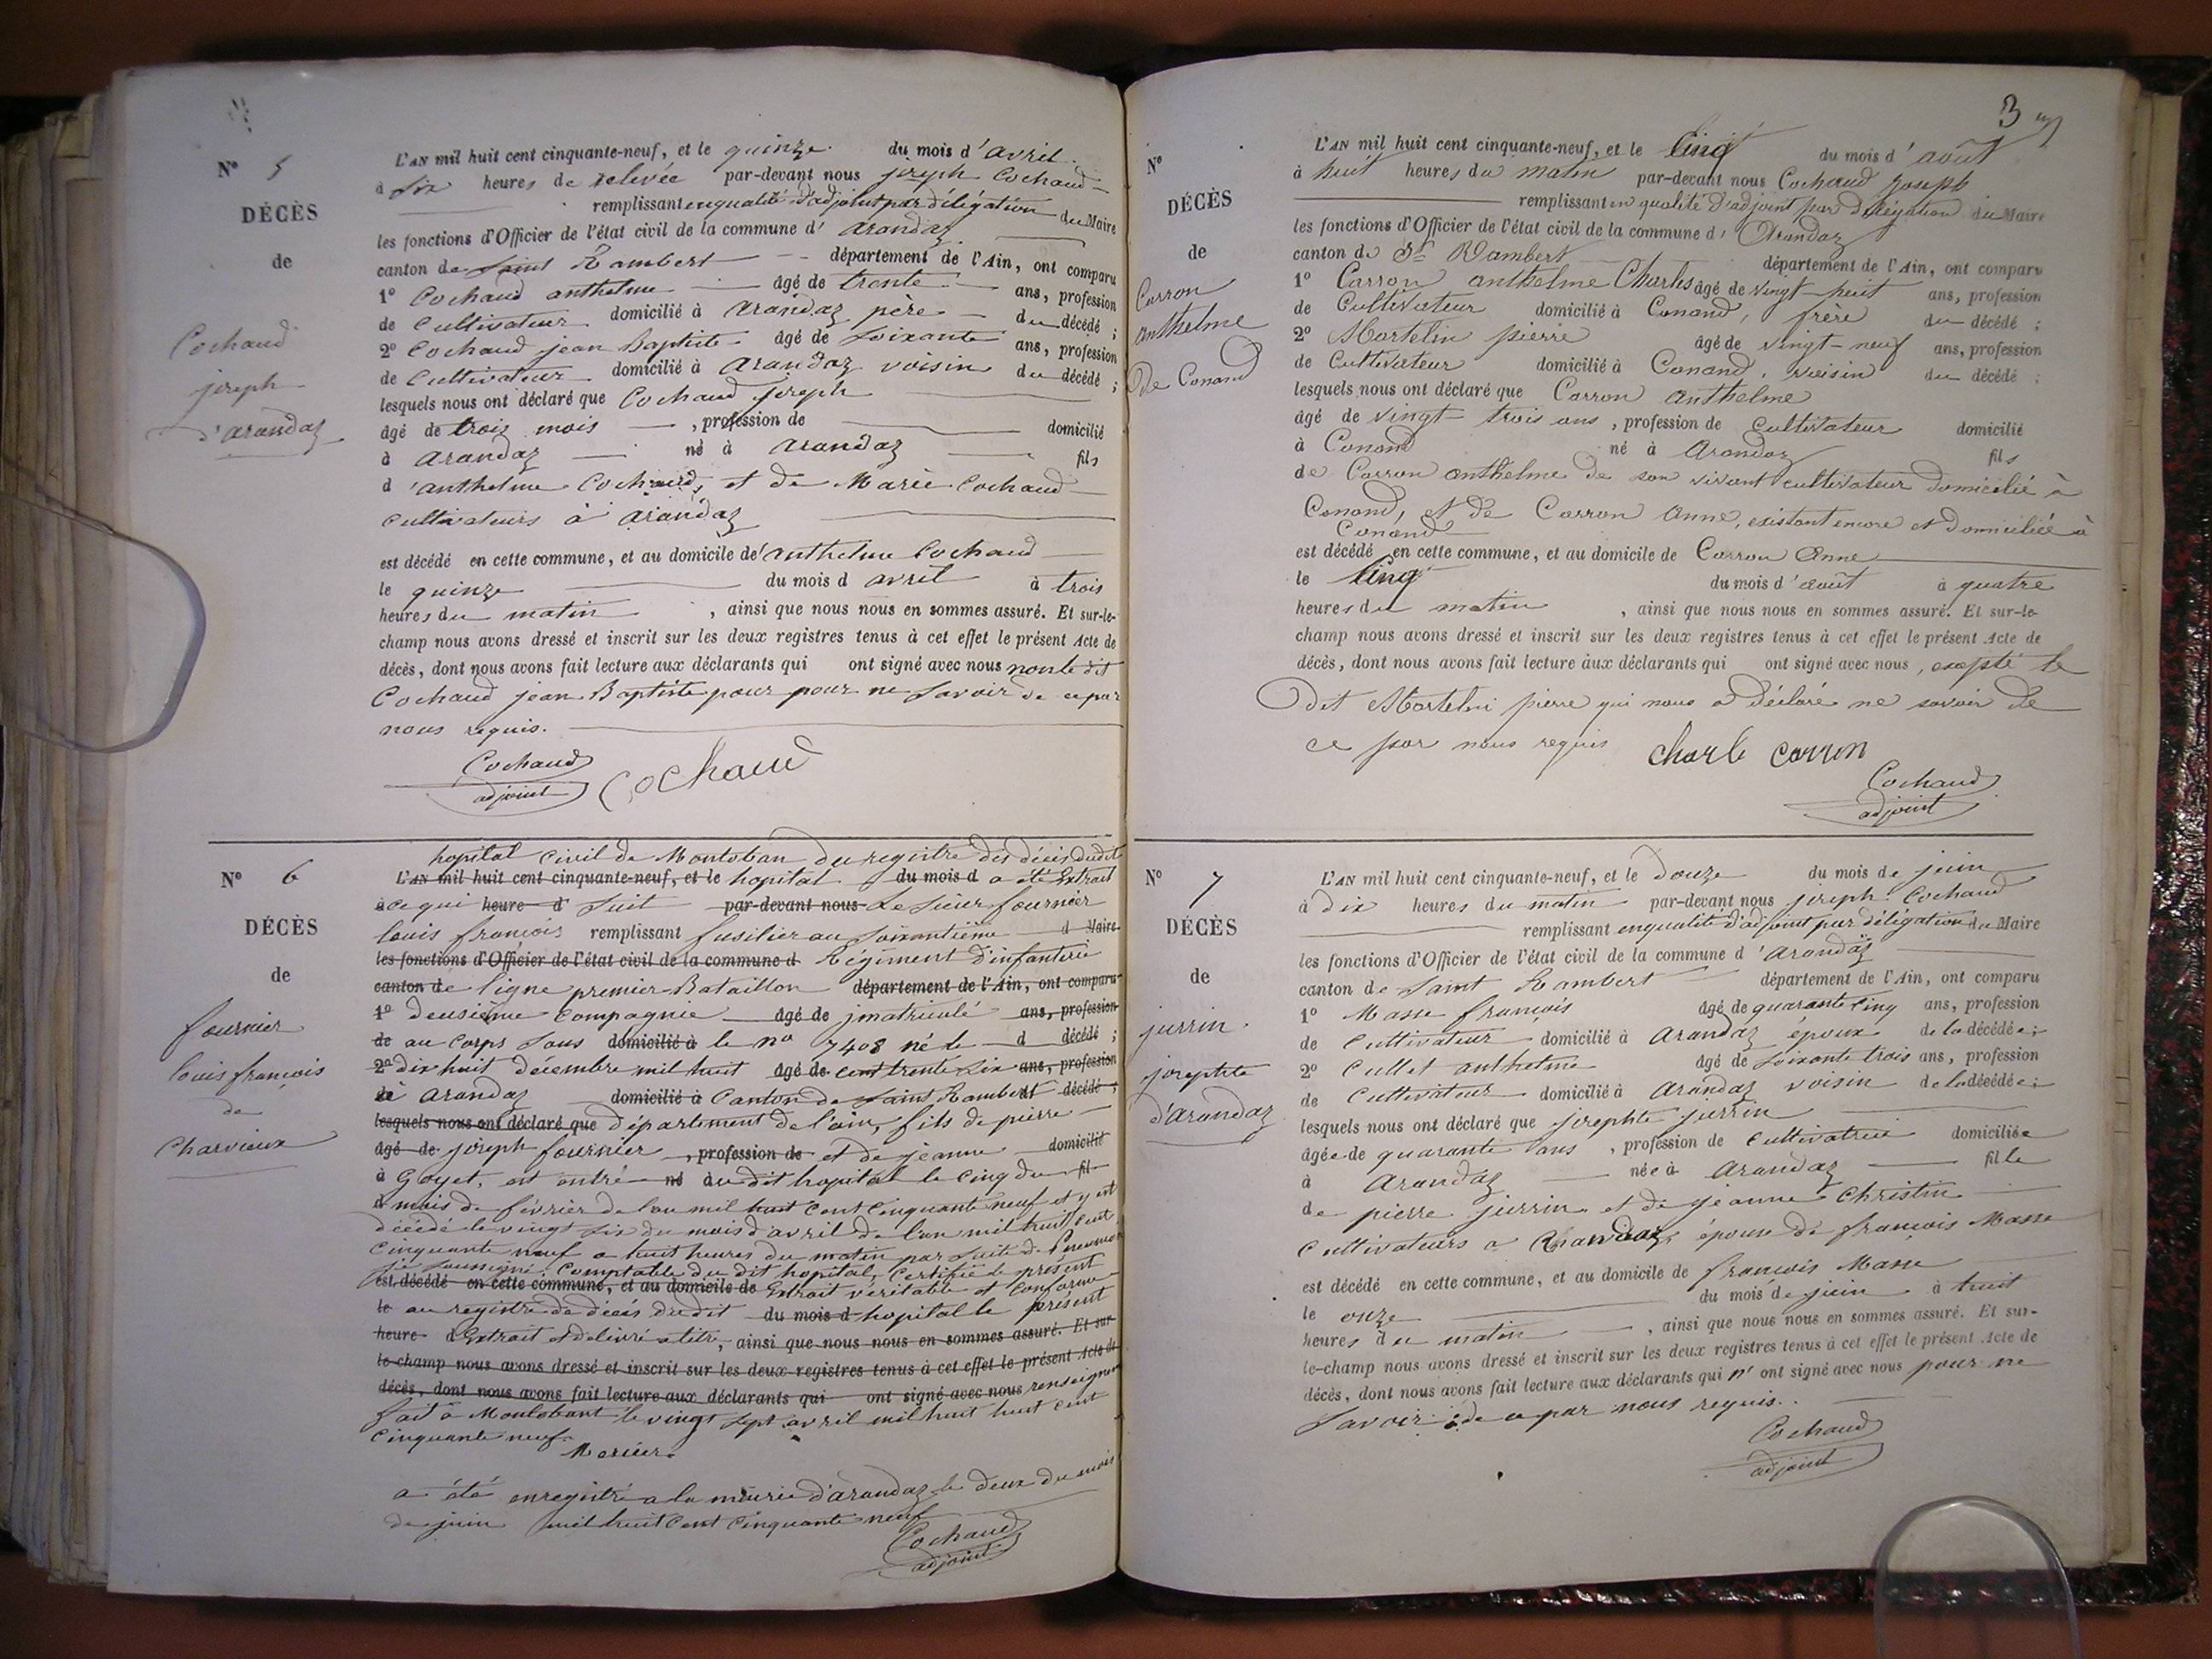 N° 5
DÉCÈS
de
Cochaud
joseph
d'arandaz
L'AN mil huit cent cinquante-neuf, et le quinze du mois d'avril
à six heures de relevée par-devant nous joseph Cochaud
remplissant en qualité d'adjoint par délégation du Maire
les fonctions d'Officier de l'état civil de la commune d' arandaz
canton de Saint Rambert département de l'Ain, ont comparu
1° Cochaud anthelme âgé de trente ans, profession
de Cultivateur domicilié à arandaz père du décédé ;
2° Cochaud jean Baptiste âgé de soixante ans, profession
de Cultivateur domicilié à arandaz voisin du décédé ;
lesquels nous ont déclaré que Cochaud joseph
âgé de trois mois , profession de domicilié
à arandaz né à arandaz fils
d'anthelme Cochaud, et de Marie Cochaud
cultivateurs à arandaz
est décédé en cette commune, et au domicile de anthelme Cochaud
le quinze du mois d avril à trois
heures du matin , ainsi que nous nous en sommes assuré. Et sur-le-
champ nous avons dressé et inscrit sur les deux registres tenus à cet effet le présent Acte de
décès, dont nous avons fait lecture aux déclarants qui ont signé avec nous non le dit
Cochaud jean Baptiste pour pour ne savoir de ce par
nous requis.
Cochaud
adjoint
Cochaud
N° 6
DÉCÈS
de
fournier
louis françois
de
Charvieux
hopital civil de Montoban du registre des décès dudit
L'AN mil huit cent cinquante-neuf, et le hopital du mois d a été Extrait
à ce qui heure d' suit par-devant nous Le sieur fournier
louis françois remplissant fusilier au soixantième d Maire
les fonctions d'Officier de l'état civil de la commune d Régiment d'infanterie
canton de ligne premier Bataillon département de l'Ain, ont comparu
1° deusième compagnie âgé de jmatriculé ans, profession
de au corps sous domicilié à le n° 7408 né le d décédé ;
2° dix huit décembre mil huit âgé de cent trente six ans, profession
de à arandaz domicilié à Canton de Saint Rambert d décédé ;
lesquels nous ont déclaré que département de l'ain, fils de pierre
âgé de joseph fournier , profession de et de jeanne domicilié
à Goyet, est entré né à au dit hopital le cinq du fil
d mois de février de l'an mil huit cent cinquante neuf et y est
décédé le vingt six du mois d'avril de l'an mil huit cent
cinquante neuf a huit heures du matin par suite de
je soussigné Comptable du dit hopital, Certifie le présent
est décédé en cette commune, et au domicile de Extrait véritable et conforme
le au registre de décès dudit du mois d hopital le présent
heure d Extrait et délivré a titre, ainsi que nous nous en sommes assuré. Et sur
le-champ nous avons dressé et inscrit sur les deux registres tenus à cet effet le présent Acte de
décès, dont nous avons fait lecture aux déclarants qui ont signé avec nous
fait à Montobant le vingt sept avril mil huit huit cent
cinquante neuf.
a été enregistré a la mairie d'arandaz le deux du mois
de juin mil huit cent cinquante neuf
Cochaud
adjoint
3
N°
DÉCÈS
de
Carron
anthelme
De Conand
L'AN mil huit cent cinquante-neuf, et le Cinq du mois d' août
à huit heures du matin par-devant nous Cochaud joseph
remplissant en qualité d'adjoint par délégation du Maire
les fonctions d'Officier de l'état civil de la commune d' Arandaz
canton de St Rambert département de l'Ain, ont comparu
1° Carron anthelme Charles âgé de vingt-huit ans, profession
de Cultivateur domicilié à Conand, frère du décédé ;
2° Martelin pierre âgé de vingt-neuf ans, profession
de Cultivateur domicilié à Conand, voisin du décédé ;
lesquels nous ont déclaré que Carron Anthelme
âgé de vingt-trois ans , profession de Cultivateur domicilié
à Conand né à Arandaz fils
de Carron anthelme de son vivant cultivateur domicilié à
Conand, et de Carron Anne, existant encore et domiciliée à
Conand
est décédé en cette commune, et au domicile de Carron Anne
le Cinq du mois d'août à quatre
heures du matin , ainsi que nous nous en sommes assuré. Et sur-le-
champ nous avons dressé et inscrit sur les deux registres tenus à cet effet le présent Acte de
décès, dont nous avons fait lecture aux déclarants qui ont signé avec nous, excepté le
Dit Martelin pierre qui nous a déclaré ne savoir de
ce par nous requis
Charle Carron
Cochaud
adjoint
N° 7
DÉCÈS
de
jurrin
josephte
d'arandaz
L'AN mil huit cent cinquante-neuf, et le douze du mois de juin
à dix heures du matin par-devant nous joseph Cochaud
remplissant en qualité d'adjoint par délégation du Maire
les fonctions d'Officier de l'état civil de la commune d'arandaz
canton de Saint Rambert département de l'Ain, ont comparu
1° Masse françois âgé de quarante cinq ans, profession
de Cultivateur domicilié à arandaz epoux de la décédée ;
2° Cullet anthelme âgé de soixante trois ans, profession
de Cultivateur domicilié à arandaz voisin de la décédée ;
lesquels nous ont déclaré que josephte jurrin
âgée de quarante ans , profession de cultivatrice domiciliée
à arandaz née à arandaz fille
de pierre jurrin et de jeanne Christin
cultivateurs a arandaz, épouse de françois Masse
est décédé en cette commune, et au domicile de françois Masse
le onze du mois de juin à huit
heures du matin , ainsi que nous nous en sommes assuré. Et sur-
le-champ nous avons dressé et inscrit sur les deux registres tenus à cet effet le présent Acte de
décès, dont nous avons fait lecture aux déclarants qui n'ont signé avec nous pour ne
savoir de ce par nous requis.
Cochaud
adjoint